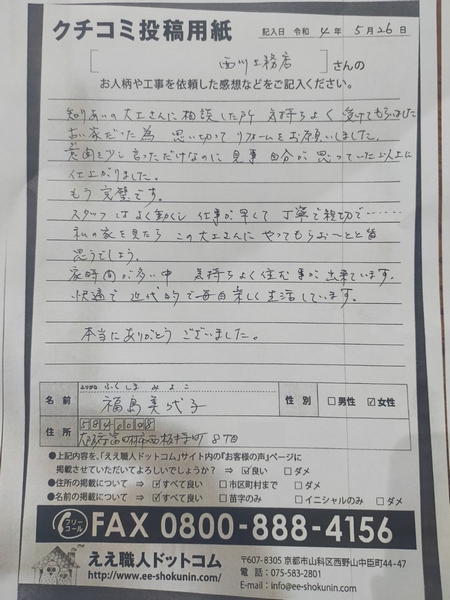 クチコミ投稿用紙
記入日 令和 4年 5月26日
[西川工務店]さんの
お人柄や工事を依頼した感想などをご記入ください。
知りあいの大工さんに相談した所 気持ちよく受けてもらいました
古い家だった為 思い切ってリフォームをお願いしました。
意向を少し言っただけなのに 見事 自分が思っていた以上に
仕上がりました。
もう完璧です。
スタッフはよく動くし 仕事が早くて 丁寧で親切で……
私の家を見たら この大工さんに やってもらお〜とと皆
思うでしょう。
家時間が多い中 気持ちよく住む事が出来ています。
快適で 近代的で毎日楽しく生活しています。
本当にありがとう ございました。
フリガナ ふくしま みよこ
名前 福島美代子 性別 □男性 ☑女性
住所 5840048
西板持町 8丁目
●上記内容を、「ええ職人ドットコム」サイト内の『お客様の声』ページに
掲載させていただいてよろしいでしょうか? ⇒ ☑良い □ダメ
●住所の掲載について ⇒ ☑すべて良い □市区町村まで □ダメ
●名前の掲載について ⇒ ☑すべて良い □苗字のみ □イニシャルのみ □ダメ
フリーコール FAX 0800-888-4156
ええ職人ドットコム
http://www.ee-shokunin.com/
〒607-8305 京都市山科区西野山中臣町44-47
電話:075-583-2801
E-mail:info@ee-shokunin.com